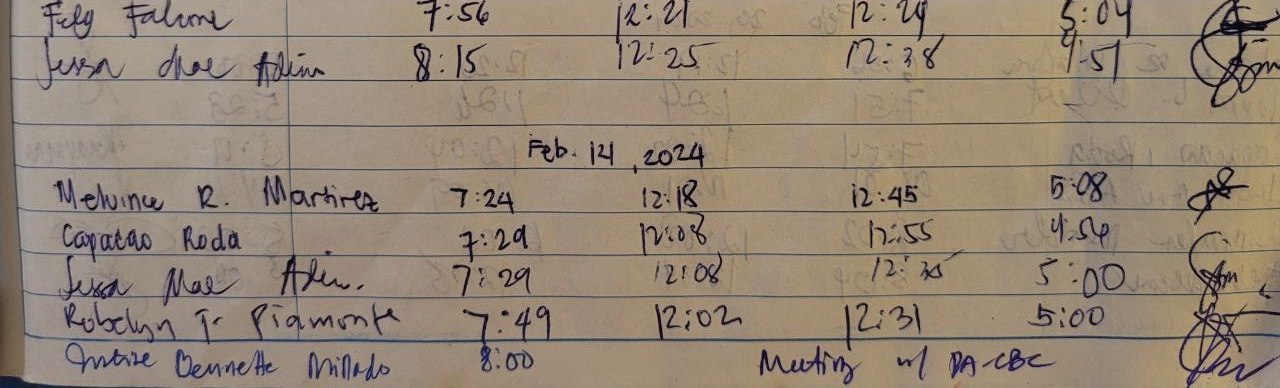 Fely Falame 7:56 12:21 12:29 5:04
Jessa Mae Adim 8:15 12:25 12:38 4:51
Feb. 14, 2024
Melvince R. Martirez 7:24 12:18 12:45 5:08
Capacao Roda 7:29 12:08 12:55 4:54
Jessa Mae Adim. 7:29 12:08 12:35 5:00
Robelyn T. Piamonte 7:49 12:02 12:31 5:00
Dennette Millado 8:00 Meeting w/ DA-CBC